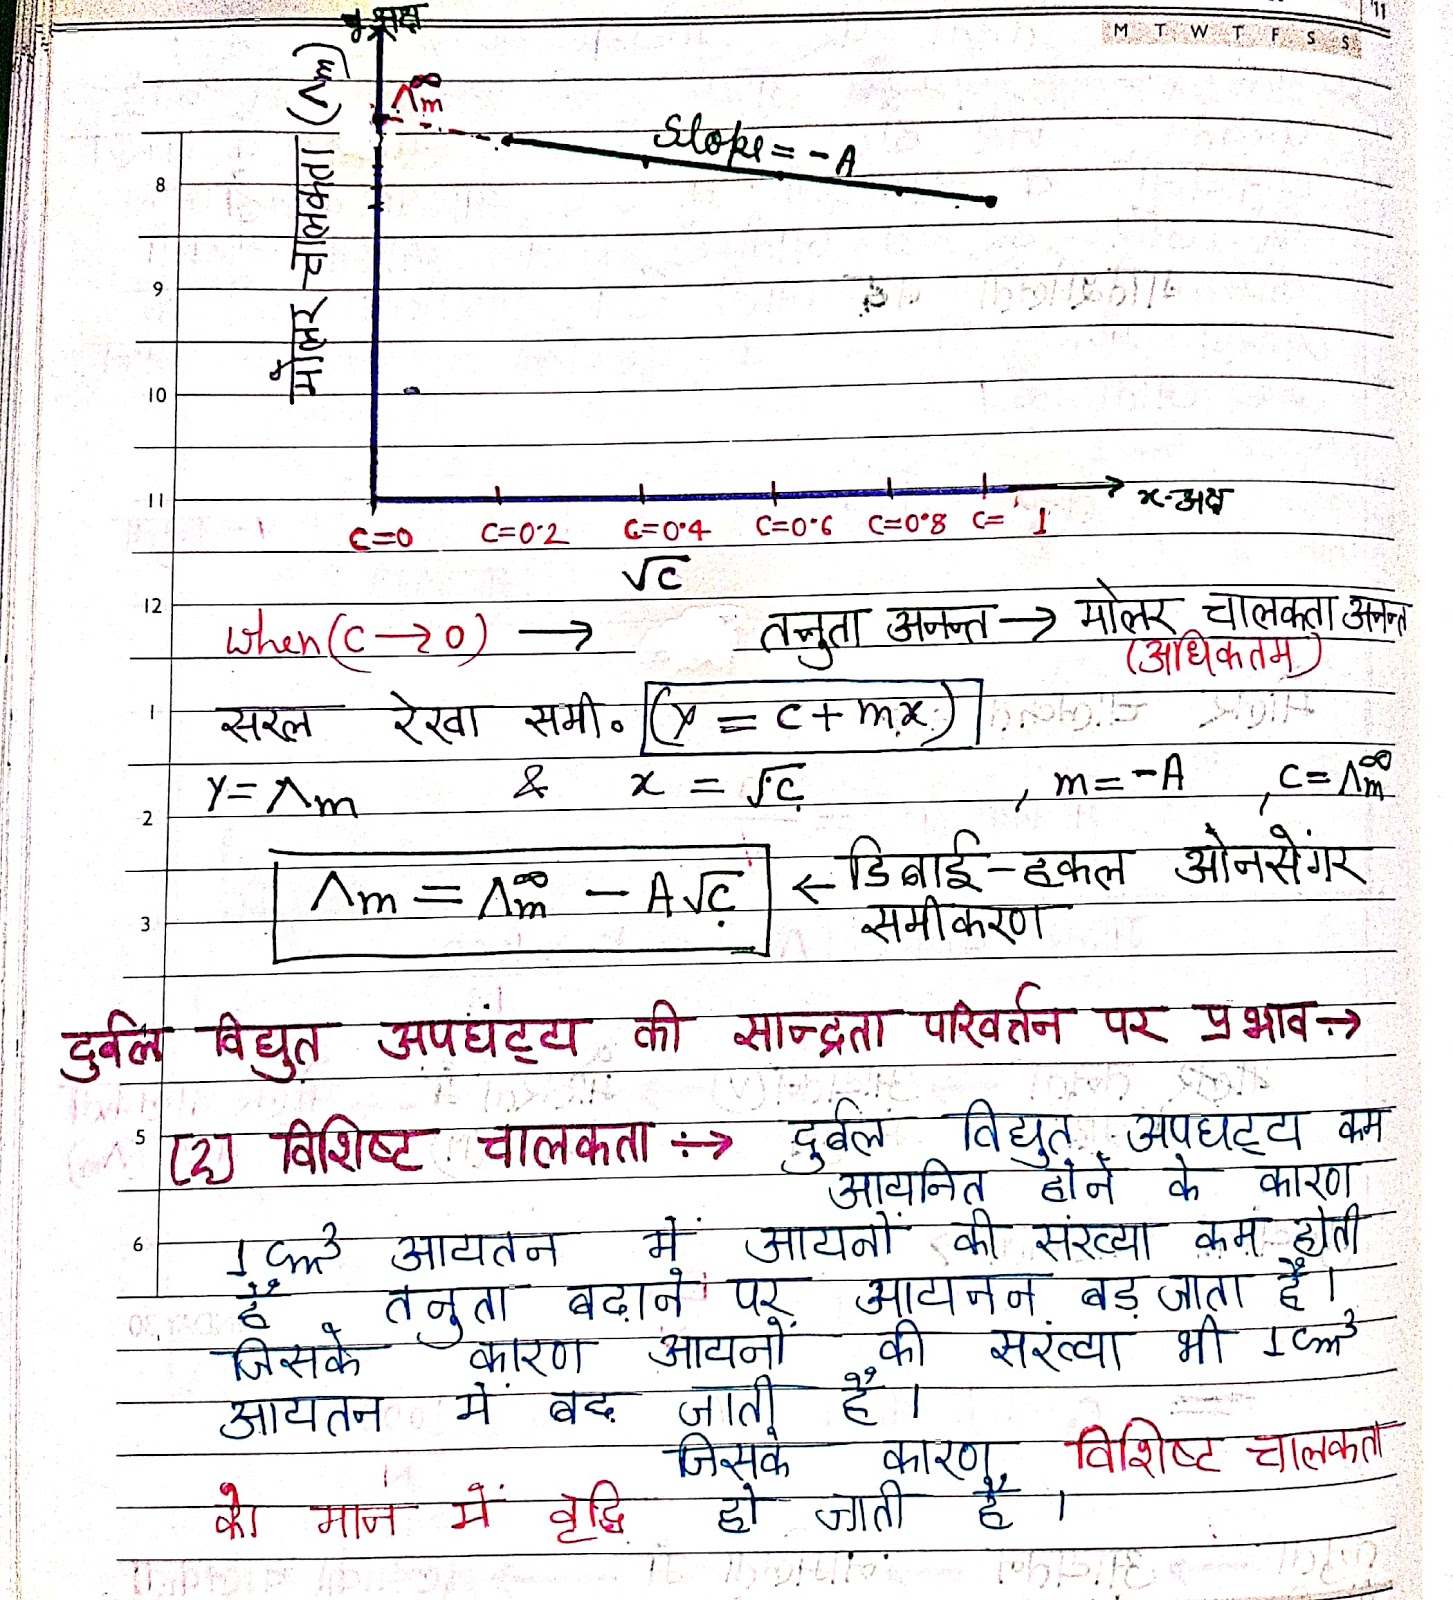 11
M T W T F S S
y-अक्ष
मोलर चालकता (Λm)
Λm∞
Slope = -A
8
9
10
11
x-अक्ष
C=0 C=0.2 C=0.4 C=0.6 C=0.8 C= 1
√C
12
When (C→0) → तनुता अनन्त → मोलर चालकता अनन्त
(अधिकतम)
1
सरल रेखा समी. (y = c + mx)
y = Λm & x = √C , m = -A , C = Λm∞
2
Λm = Λm∞ - A√C ← डिबाई-हकल ओनसेंगर
समीकरण
3
दुर्बल विद्युत अपघट्ट्य की सान्द्रता परिवर्तन पर प्रभाव→
5
(2) विशिष्ट चालकता ÷→ दुर्बल विद्युत अपघट्ट्य कम
आयनित होने के कारण
6
1 cm³ आयतन में आयनों की संख्या कम होती
है तनुता बढाने पर आयनन बड़ जाता है।
जिसके कारण आयनों की संख्या भी 1cm³
आयतन में बढ जाती है।
जिसके कारण विशिष्ट चालकता
के मान में वृद्धि हो जाती है ।